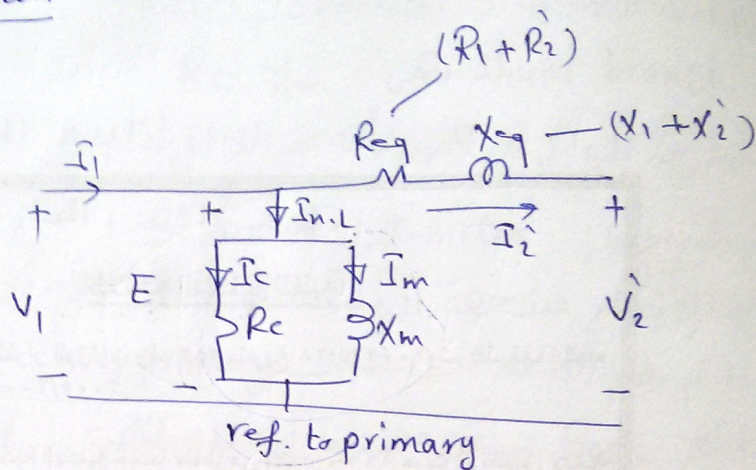 (R1+R2`)
Req
Xeq — (X1+X2`)
I1
+
+
In.L
I2`
+
E
Ic
Im
V1
Rc
Xm
V2`
−
−
−
ref. to primary